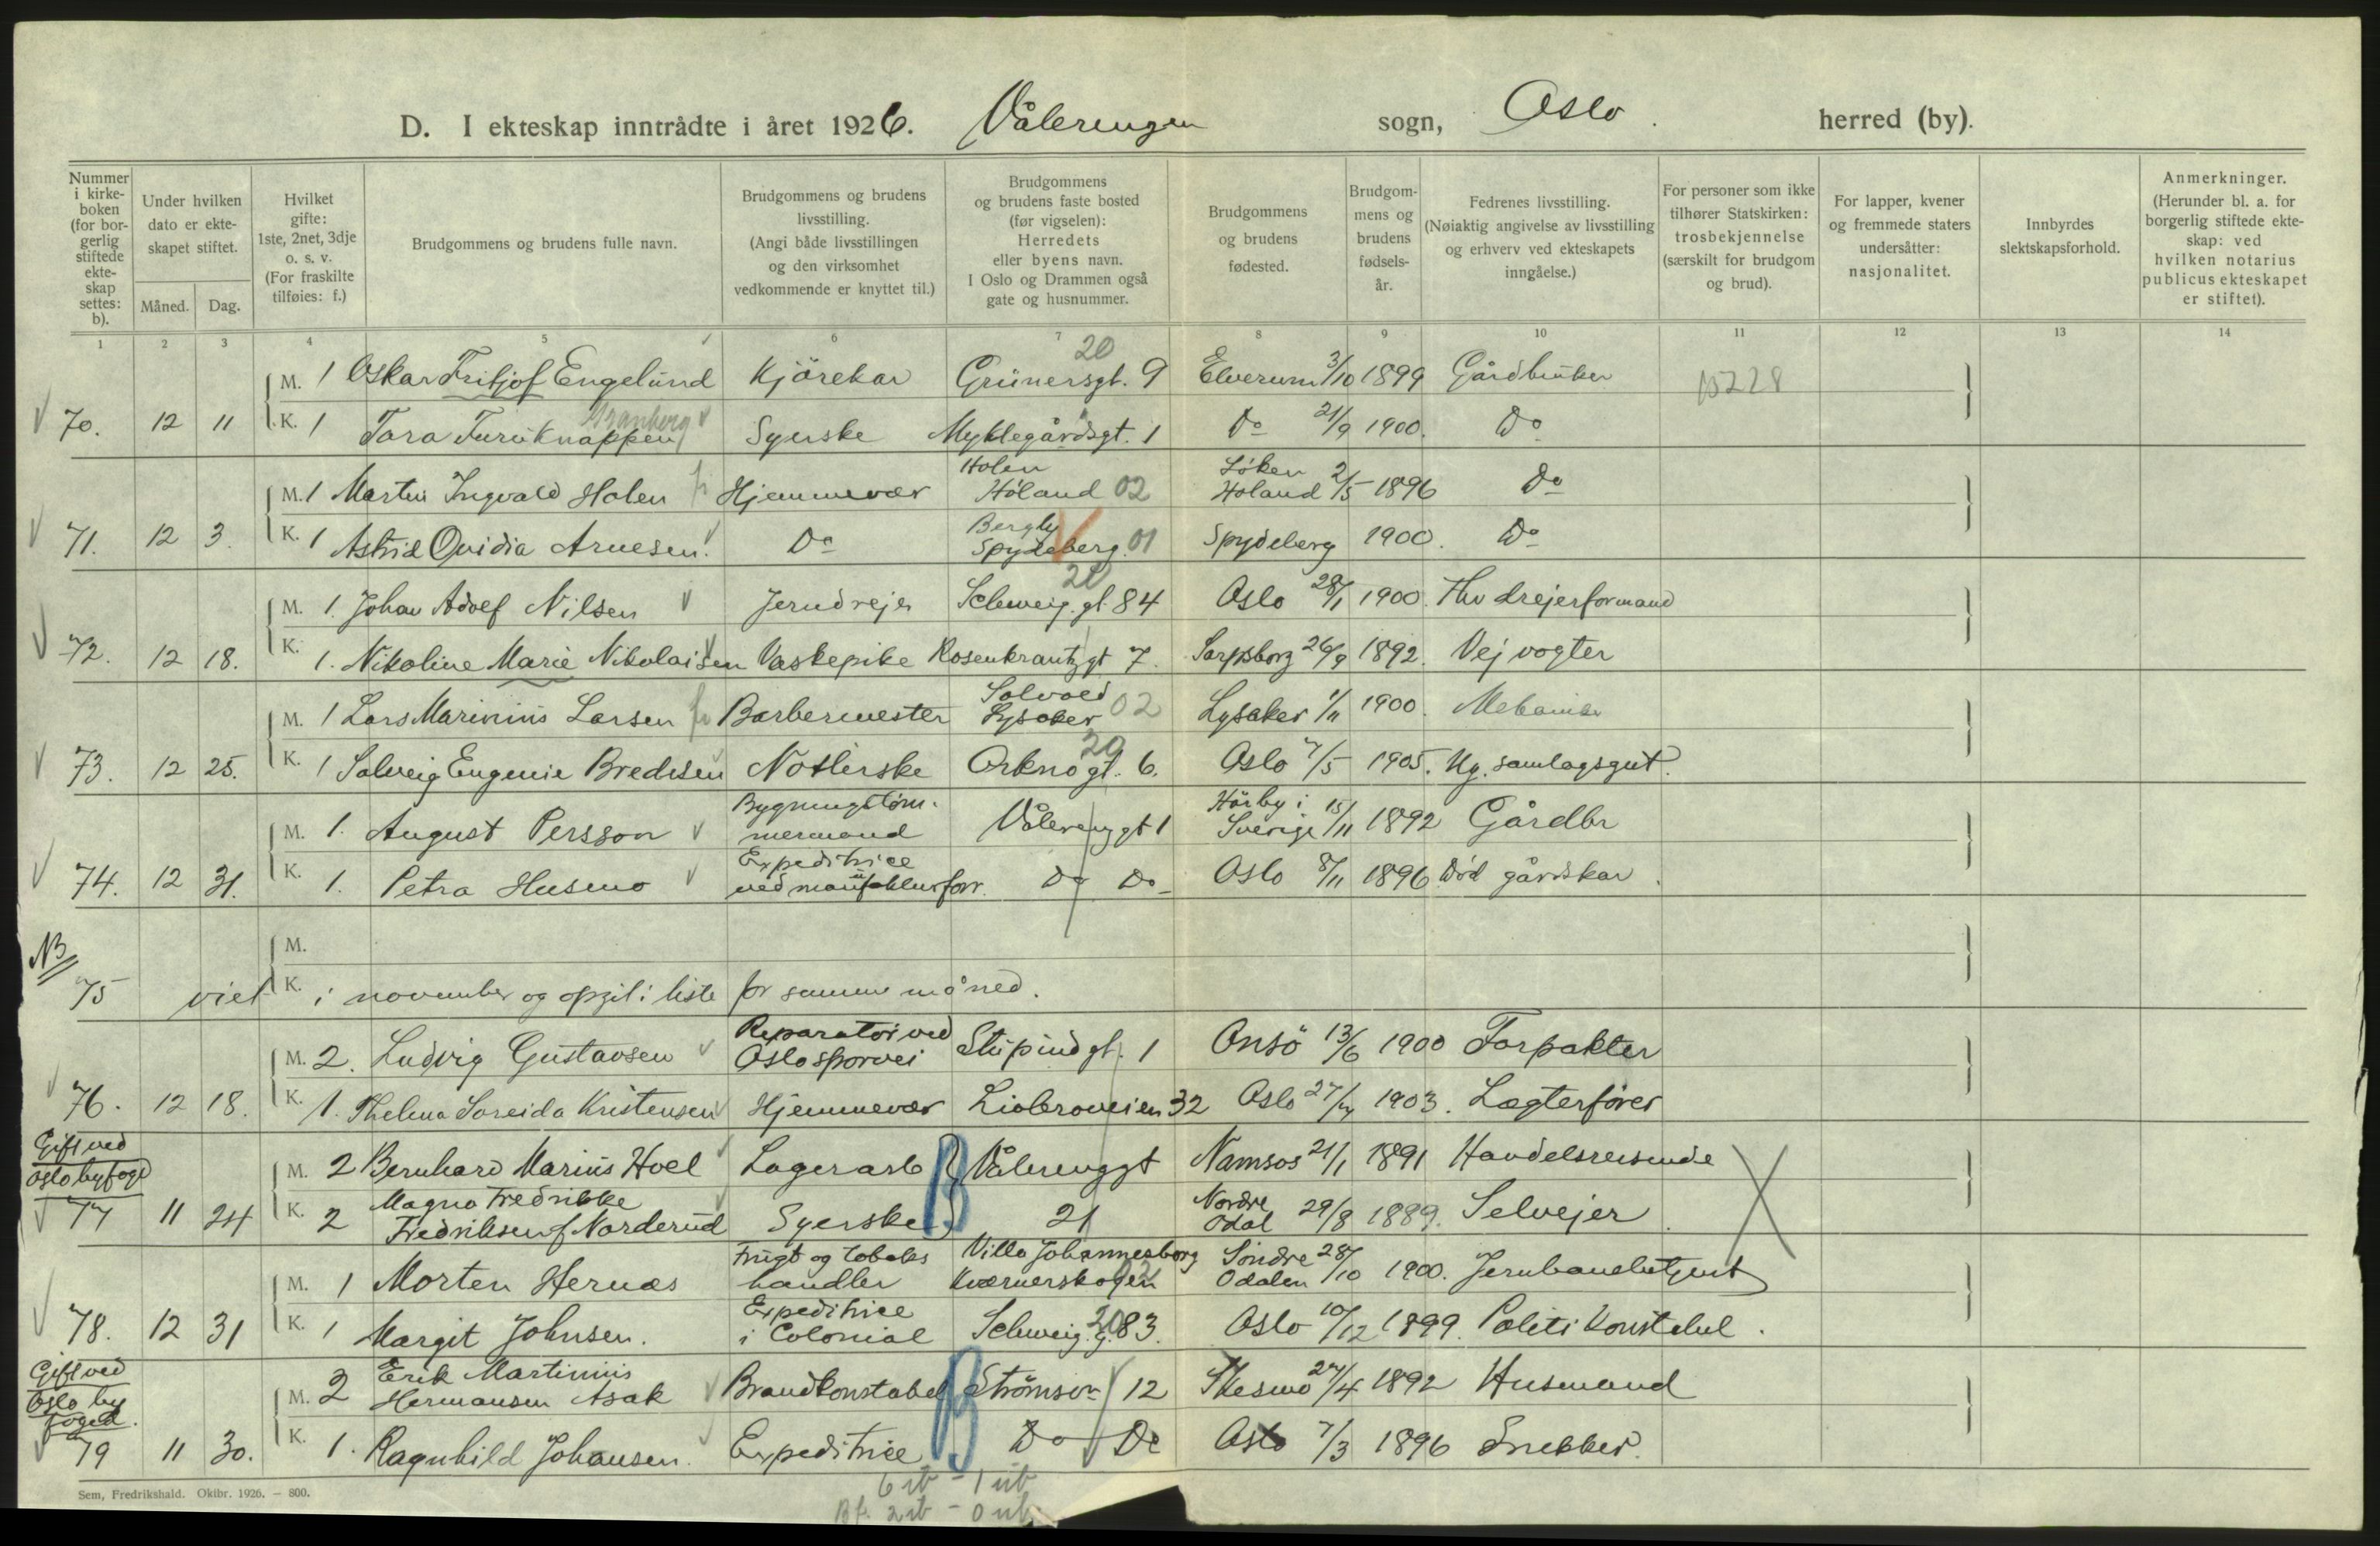 D. I ekteskap inntrådte i året 1926. Vålerengen sogn, Oslo herred (by).
Nummer i kirke-boken (for bor-gerlig stiftede ekte-skap settes: b).
Under hvilken dato er ekte-skapet stiftet.
Måned. Dag.
Hvilket gifte: 1ste, 2net, 3dje o. s. v. (For fraskilte tilføies: f.)
Brudgommens og brudens fulle navn.
Brudgommens og brudens livsstilling. (Angi både livsstillingen og den virksomhet vedkommende er knyttet til.)
Brudgommens og brudens faste bosted (før vigselen): Herredets eller byens navn. I Oslo og Drammen også gate og husnummer.
Brudgommens og brudens fødested.
Brudgom-mens og brudens fødsels-år.
Fedrenes livsstilling. (Nøiaktig angivelse av livsstilling og erhverv ved ekteskapets inngåelse.)
For personer som ikke tilhører Statskirken: trosbekjennelse (særskilt for brudgom og brud).
For lapper, kvener og fremmede staters undersåtter: nasjonalitet.
Innbyrdes slektskapsforhold.
Anmerkninger. (Herunder bl. a. for borgerlig stiftede ekte-skap: ved hvilken notarius publicus ekteskapet er stiftet).
1 2 3 4 5 6 7 8 9 10 11 12 13 14
M. 1 Oskar Fritjof Engelund Kjörekar Grünersgt. 9 20 Elverum 3/10 1899 Gårdbruker 15228
70. 12 11 K. 1 Tora Furuknappen Granberg Syerske Myklegårdsgt. 1 Do 21/9 1900. Do
M. 1 Martin Ingvald Holen Hjemmevær Holen Höland 02 Löken Höland 2/5 1896 Do
71. 12 3. K. 1 Astrid Ovidia Arnesen. Do Bergly Spydeberg. 01 Spydeberg 1900. Do
M. 1. Johan Adolf Nilsen Jerndrejer Schweig. gt. 84 20 Oslo 28/1 1900. Hv drejerformand
72. 12 18. K. 1. Nikoline Marie Nikolaisen Vaskepike Rosenkrantzgt 7. Sarpsborg 26/9 1892. Vejvogter
M. 1 Lars Marinius Larsen Barbermester Solvold Lysaker 02 Lysaker 1/11 1900. Mekaniker
73. 12 25. K. 1 Solveig Eugenie Bredesen Notterske Orknögt. 6. 20 Oslo 7/5 1905. Ug. samlagsgut.
M. 1. August Persson Bygningstöm-mermand Vålerenggt 1 Hörby i Sverige 15/11 1892 Gårdbr
74. 12 31. K. 1. Petra Husmo Expeditrice ved manufakturforr. Do Do Oslo 8/11 1896 Död gårdskar.
NB M.
75 viet K. i november og opgit i liste for samme måned.
M. 2. Ludvig Gustavsen Reparatör ved Oslo sporvei Stupindgt. 1 Onsö 13/6 1900 Forpakter
76. 12 18. K. 1. Thelma Soreida Kristensen Hjemmevær Liabroveien 32 Oslo 1903. Lægterförer
Gift ved Oslo byfogd
M. 2 Bernhard Marius Hoel Lagerarb B Vålerenggt Namsos 21/1 1891 Handelsreisende
77 11 24 K. 2 Magna Fredrikke Fredriksen f Norderud Syerske 21 Nordre Odal 29/8 1889. Selvejer.
M. 1 Morten Hernæs Frugt og tobaks handler Villa Johannesborg Kværnerskogen 02 Söndre Odalen 28/10 1900. Jernbanebetjent
78. 12 31 K. 1 Margit Johnsen. Expeditrice i Colonial Schweig. g. 83. 20 Oslo 10/12 1899. Politikonstabel.
Gift ved Oslo by foged.
M. 2 Erik Martinius Hermansen Asak Brandkonstabel B Strömsv 12 Skesmo 27/4 1892 Husmand
79 11 30. K. 1. Ragnhild Johansen. Expeditrice Do Do Oslo 7/3 1896 Snekker.
Sem, Fredrikshald. Oktbr. 1926. – 800.
6 ib – 1 ub
Bf. 2 ib – 0 ub